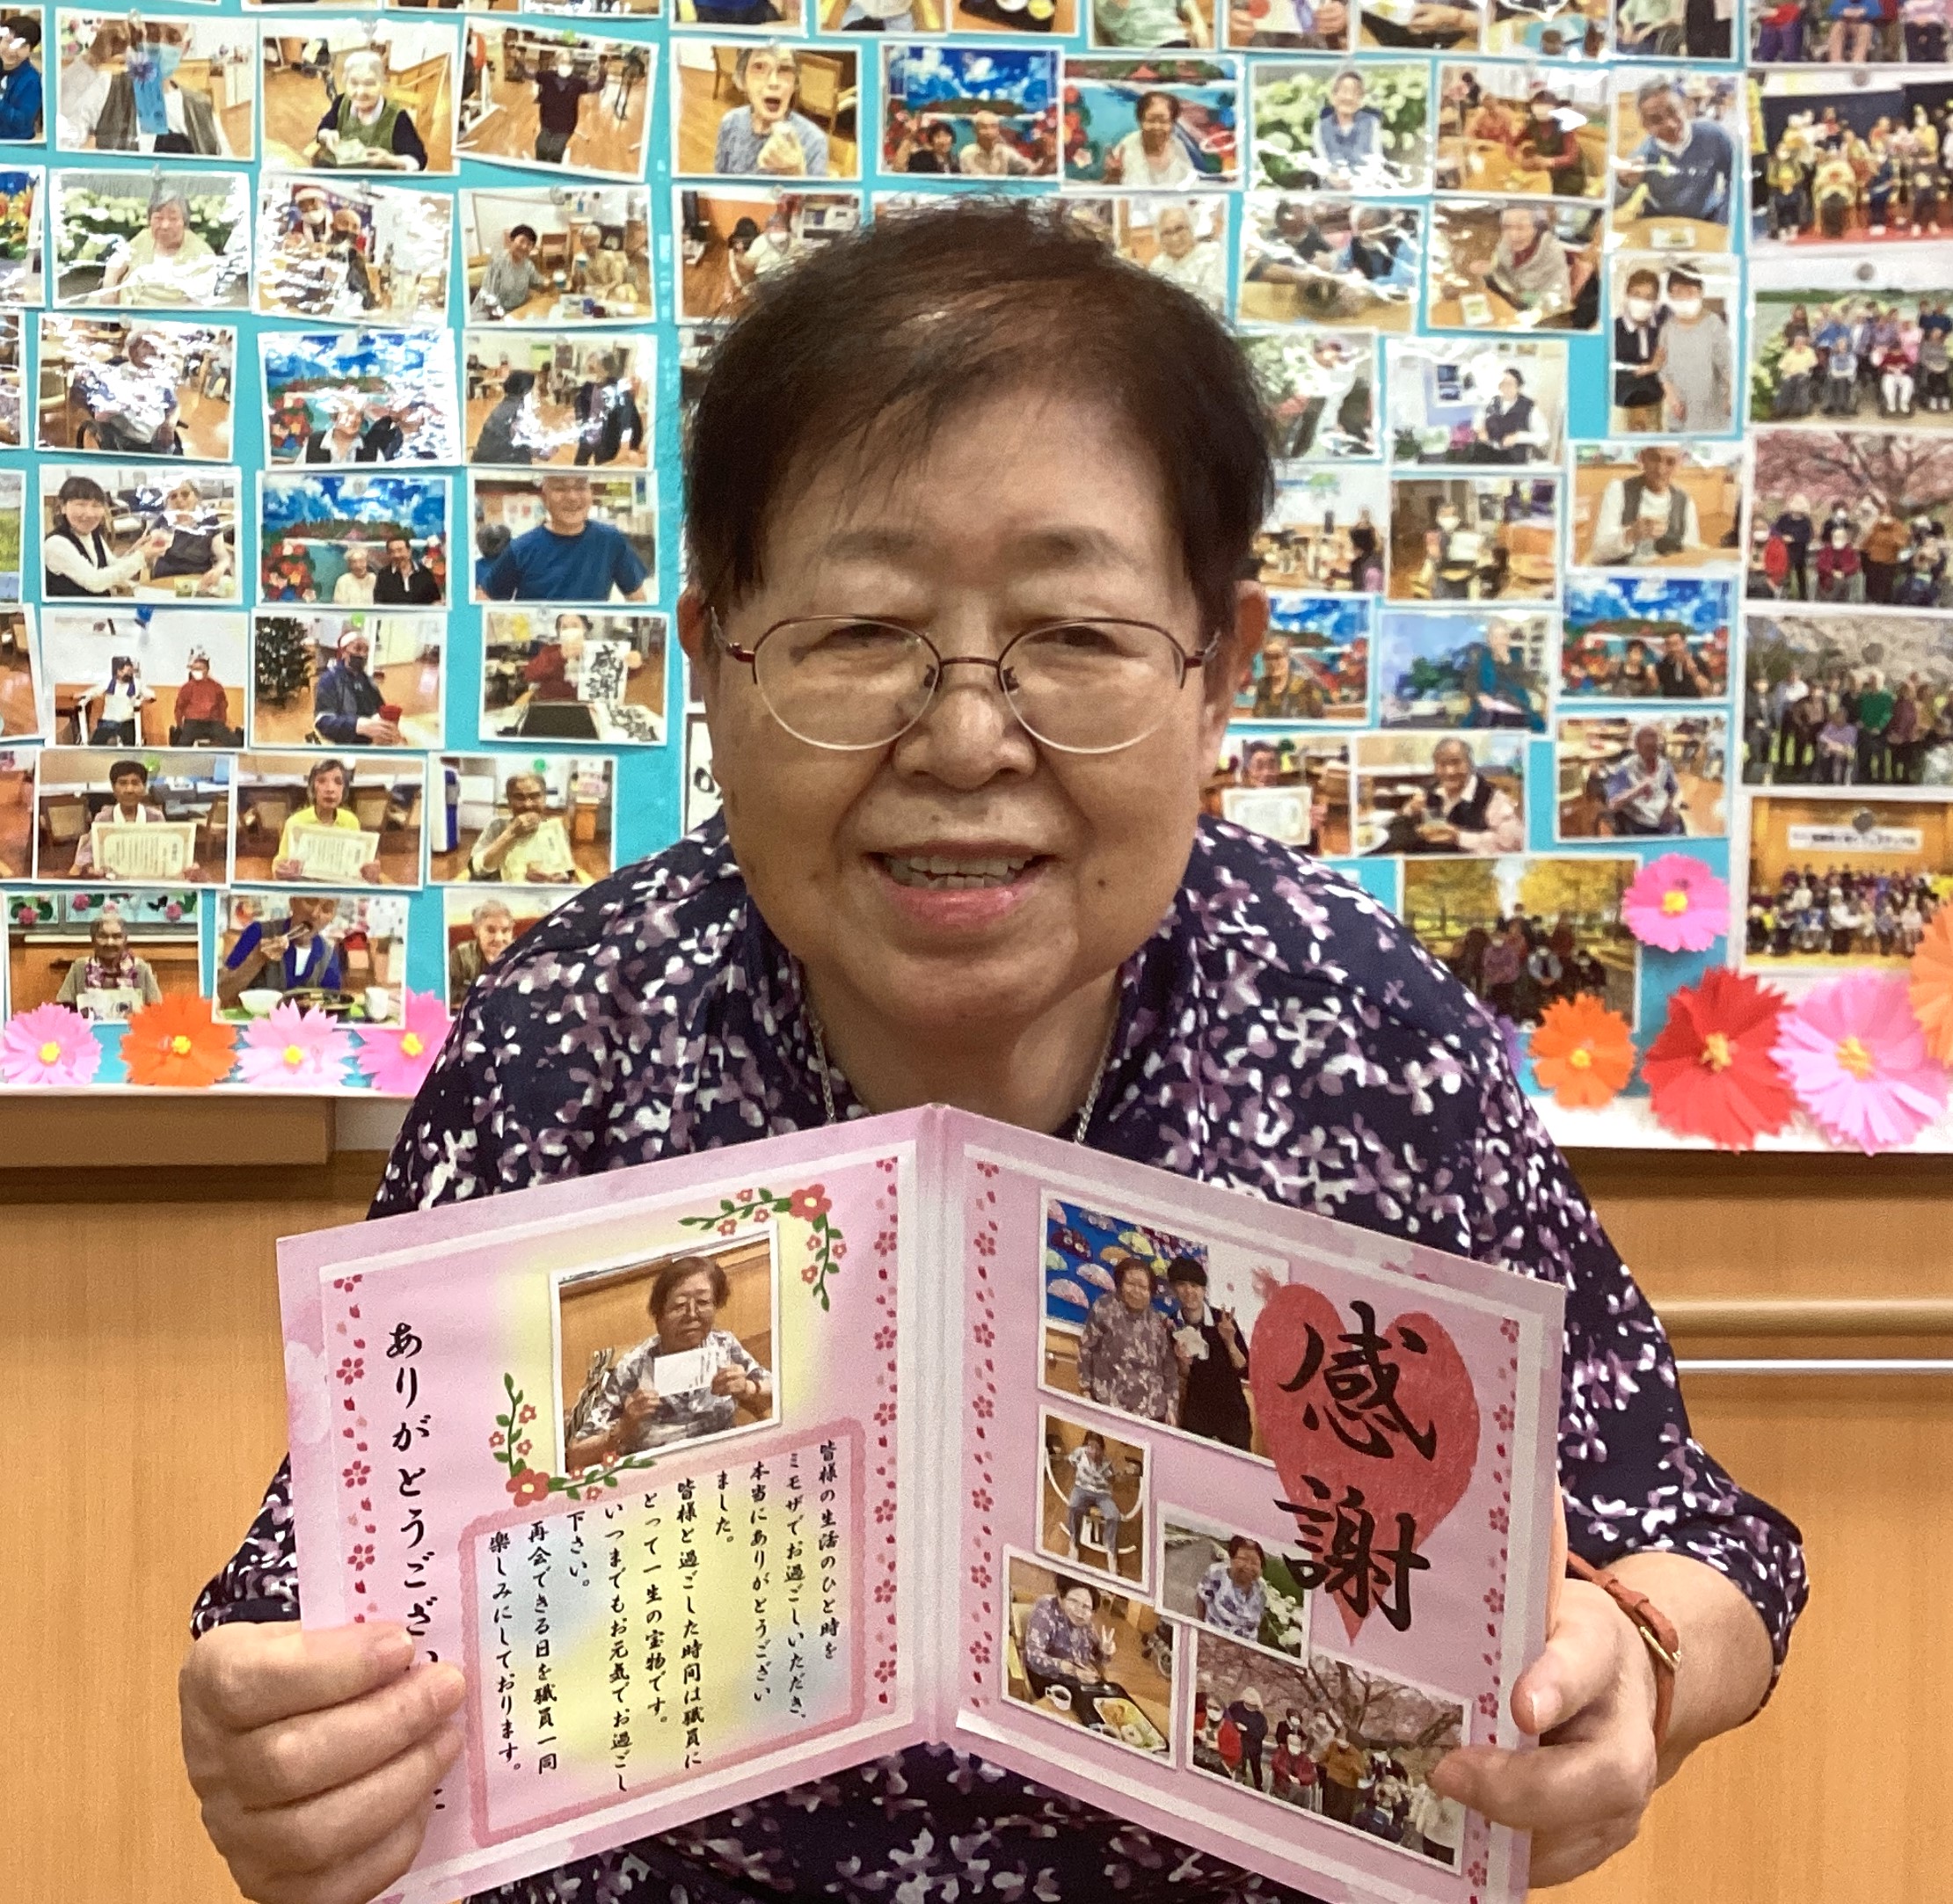 感謝
皆様の生活のひと時を
ミモザでお過ごしいただき、
本当にありがとうござい
ました。
皆様と過ごした時間は職員に
とって一生の宝物です。
いつまでもお元気でお過ごし
下さい。
再会できる日を職員一同
楽しみにしております。
ありがとうござい
た
感謝